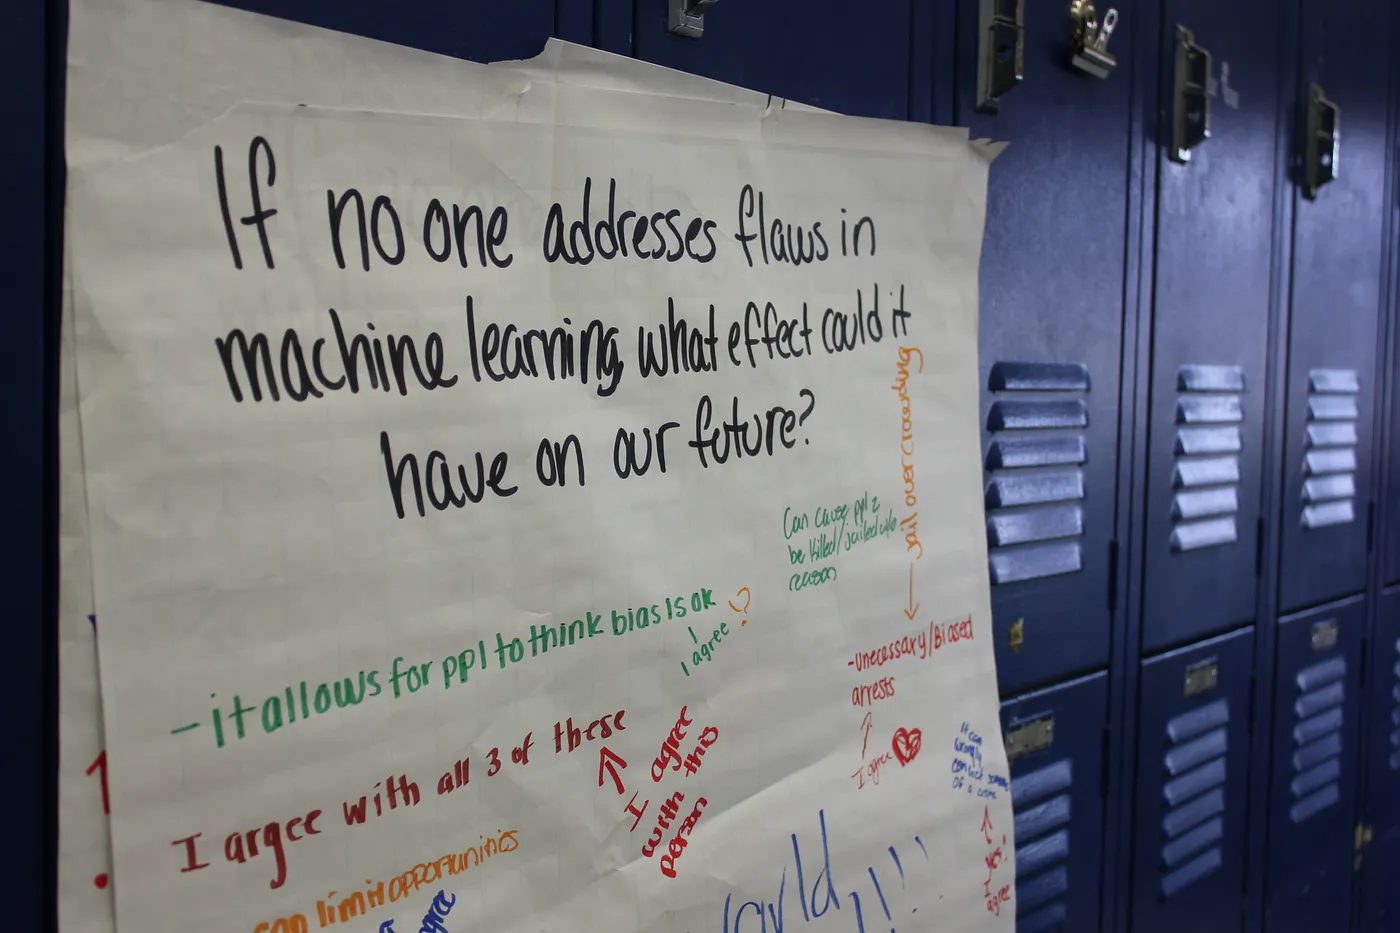 If no one addresses flaws in
machine learning, what effect could it
have on our future?
jail overcrowding
Can cause ppl 2
be killed/jailed w/o
reason
- it allows for ppl to think bias is ok
?
I agree
-unecessary/Biased
arrests
I agree
I argee with all 3 of these
I agree
with this
person
it can
wrongly
of a crime
yes!
I agree
can limit opportunities
agree
world
!!!